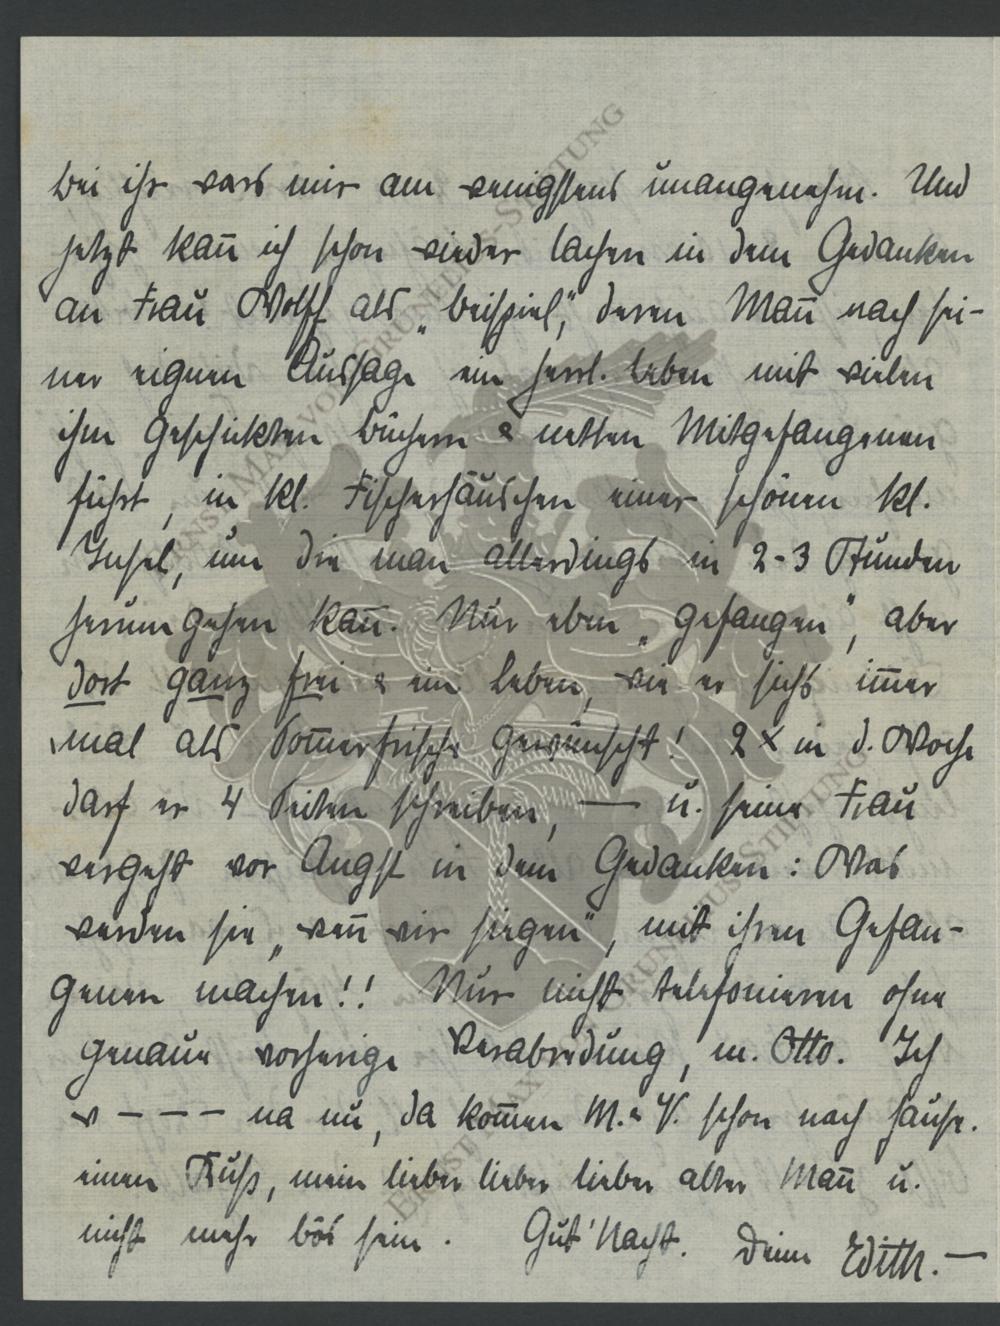 bei ihr wars mir am wenigstens unangenehm. Und
jetzt kan̄ ich schon wieder lachen in dem Gedanken
an Frau Wolff als „beispiel“, deren Man̄ nach sei-
ner eignen Aussage ein herrl. Leben mit vielen
ihm geschickten büchern & netten Mitgefangenen
führt, in kl. Fischerhäuschen einer schönen kl.
Insel, um die man allerdings in 2-3 Stunden
herumgehen kan̄. Nur eben „gefangen“, aber
dort ganz frei & ein Leben, wie er sichs im̄er
mal als Som̄erfrische gewünscht! 2 x in d. Woche
darf er 4 Seiten schreiben, — u. seine Frau
vergeht vor Angst in dem Gedanken: Was
werden sie „wen̄ wir siegen“, mit ihren Gefan-
genen machen!! Nur nicht telefonieren ohne
genaue vorherige Verabredung, m. Otto. Ich
w – – – – na nu, da kom̄en M. & V. schon nach hause.
einen Kuß, mein lieber lieber lieber alter Man̄ u.
nicht mehr bös sein. Gut' Nacht. Deine Edith. —
ERNST-MAX VON GRUNELIUS-STIFTUNG
ERNST MAX VON GRUNELIUS-STIFTUNG